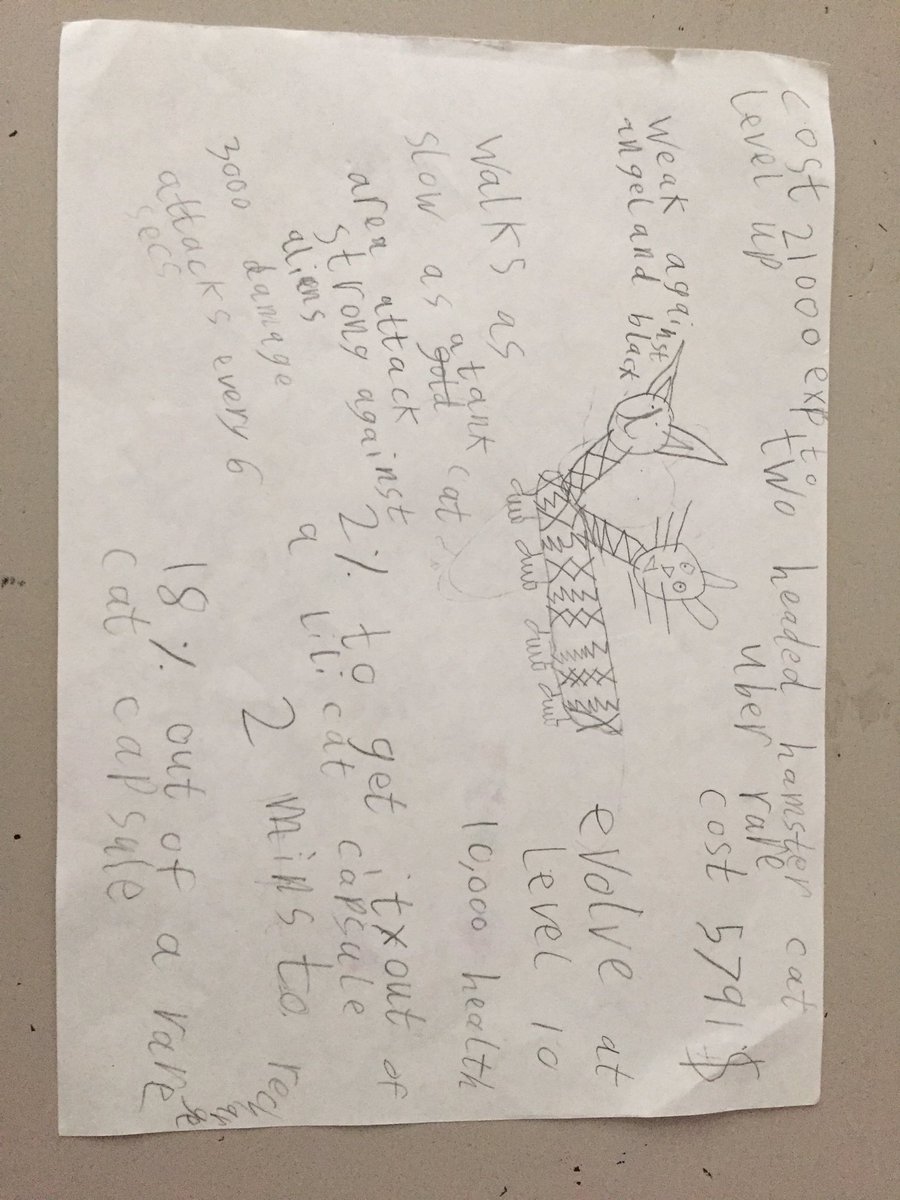 cost 21000 exp to
level up
two headed hamster cat
uber rare
cost 5791 $
weak against
angel and black
evolve at
level 10
walks as
slow as a tank cat
10,000 health
area attack
strong against
aliens
2% to get it out of
a lili cat capsule
3000 damage
2 mins to
attacks every 6
secs
18% out of a rare
cat capsule